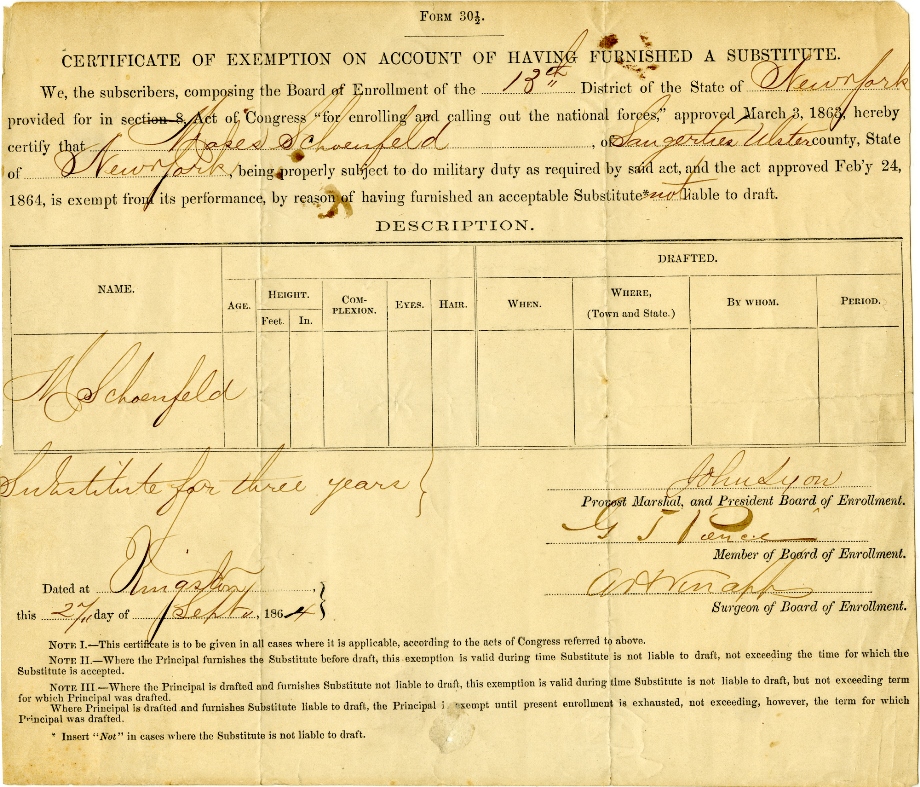 FORM 30½.
CERTIFICATE OF EXEMPTION ON ACCOUNT OF HAVING FURNISHED A SUBSTITUTE.
We, the subscribers, composing the Board of Enrollment of the 13th District of the State of New York
provided for in section 8, Act of Congress "for enrolling and calling out the national forces," approved March 3, 1863, hereby
certify that Moses Schoenfeld, of Saugerties Ulster county, State
of New York, being properly subject to do military duty as required by said act, and the act approved Feb'y 24,
1864, is exempt from its performance, by reason of having furnished an acceptable Substitute *not liable to draft.
DESCRIPTION.
DRAFTED.
NAME. AGE. HEIGHT. Feet. In. COM-PLEXION. EYES. HAIR. WHEN. WHERE, (Town and State.) BY WHOM. PERIOD.
M Schoenfeld
Substitute for three years }
John Lyon
Provost Marshal, and President Board of Enrollment.
G T Pierce
Member of Board of Enrollment.
Knapp
Surgeon of Board of Enrollment.
Dated at Kingston
this 27 day of Sept, 1864 }
NOTE I.—This certificate is to be given in all cases where it is applicable, according to the acts of Congress referred to above.
NOTE II.—Where the Principal furnishes the Substitute before draft, this exemption is valid during time Substitute is not liable to draft, not exceeding the time for which the
Substitute is accepted.
NOTE III.—Where the Principal is drafted and furnishes Substitute not liable to draft, this exemption is valid during time Substitute is not liable to draft, but not exceeding term
for which Principal was drafted.
Where Principal is drafted and furnishes Substitute liable to draft, the Principal is exempt until present enrollment is exhausted, not exceeding, however, the term for which
Principal was drafted.
* Insert "Not" in cases where the Substitute is not liable to draft.